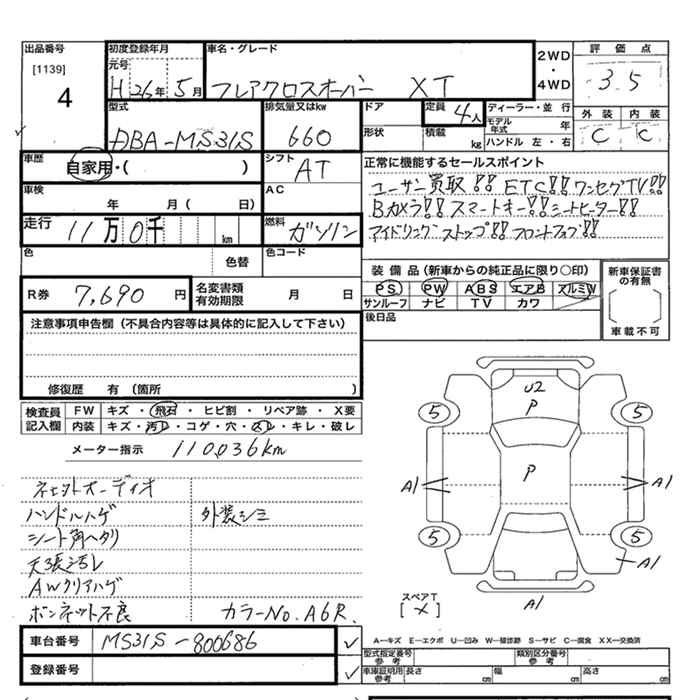 出品番号
[1139]
4
初度登録年月
元号
H 26年 5月
車名・グレード
フレアクロスオーバー XT
2WD
・
4WD
評価点
3.5
型式
DBA-MS31S
排気量又はkw
660
ドア
形状
定員
4人
積載
kg
ディーラー・並 行
モデル年式 年
ハンドル 左・右
外装 内装
C C
車歴
自家用・( )
シフト
AT
正常に機能するセールスポイント
ユーザー買取!! ETC!! ワンセグTV!!
Bカメラ!! スマートキー!! シートヒーター!!
アイドリングストップ!! フロントフォグ!!
車検
年 月( 日)
AC
走行
11万0千 km
燃料
ガソリン
色
色替
色コード
装備品(新車からの純正品に限り○印)
PS PW ABS エアB アルミW
サンルーフ ナビ TV カワ
新車保証書の有無
車載不可
R券 7,690 円
名変書類有効期限 月 日
後日品
注意事項申告欄(不具合内容等は具体的に記入して下さい)
修復歴 有(箇所 )
検査員記入欄
FW キズ・飛石・ヒビ割・リペア跡・X要
内装 キズ・汚レ・コゲ・穴・スレ・キレ・破レ
メーター指示 110,036km
社外オーディオ
ハンドルハゲ 外装シミ
シート角ヘタリ
天張汚レ
AWクリアハゲ
ボンネット不良 カラーNo.A6R.
U2
P
P
5
5
5
5
A1
A1
A1
A1
スペアT
[×]
車台番号 MS31S-800686
登録番号
A―キズ E―エクボ U―凹み W―補修跡 S―サビ C―腐食 XX―交換済
型式指定番号参考
類別区分番号参考
車庫証明用参考 長さ cm 幅 cm 高さ cm